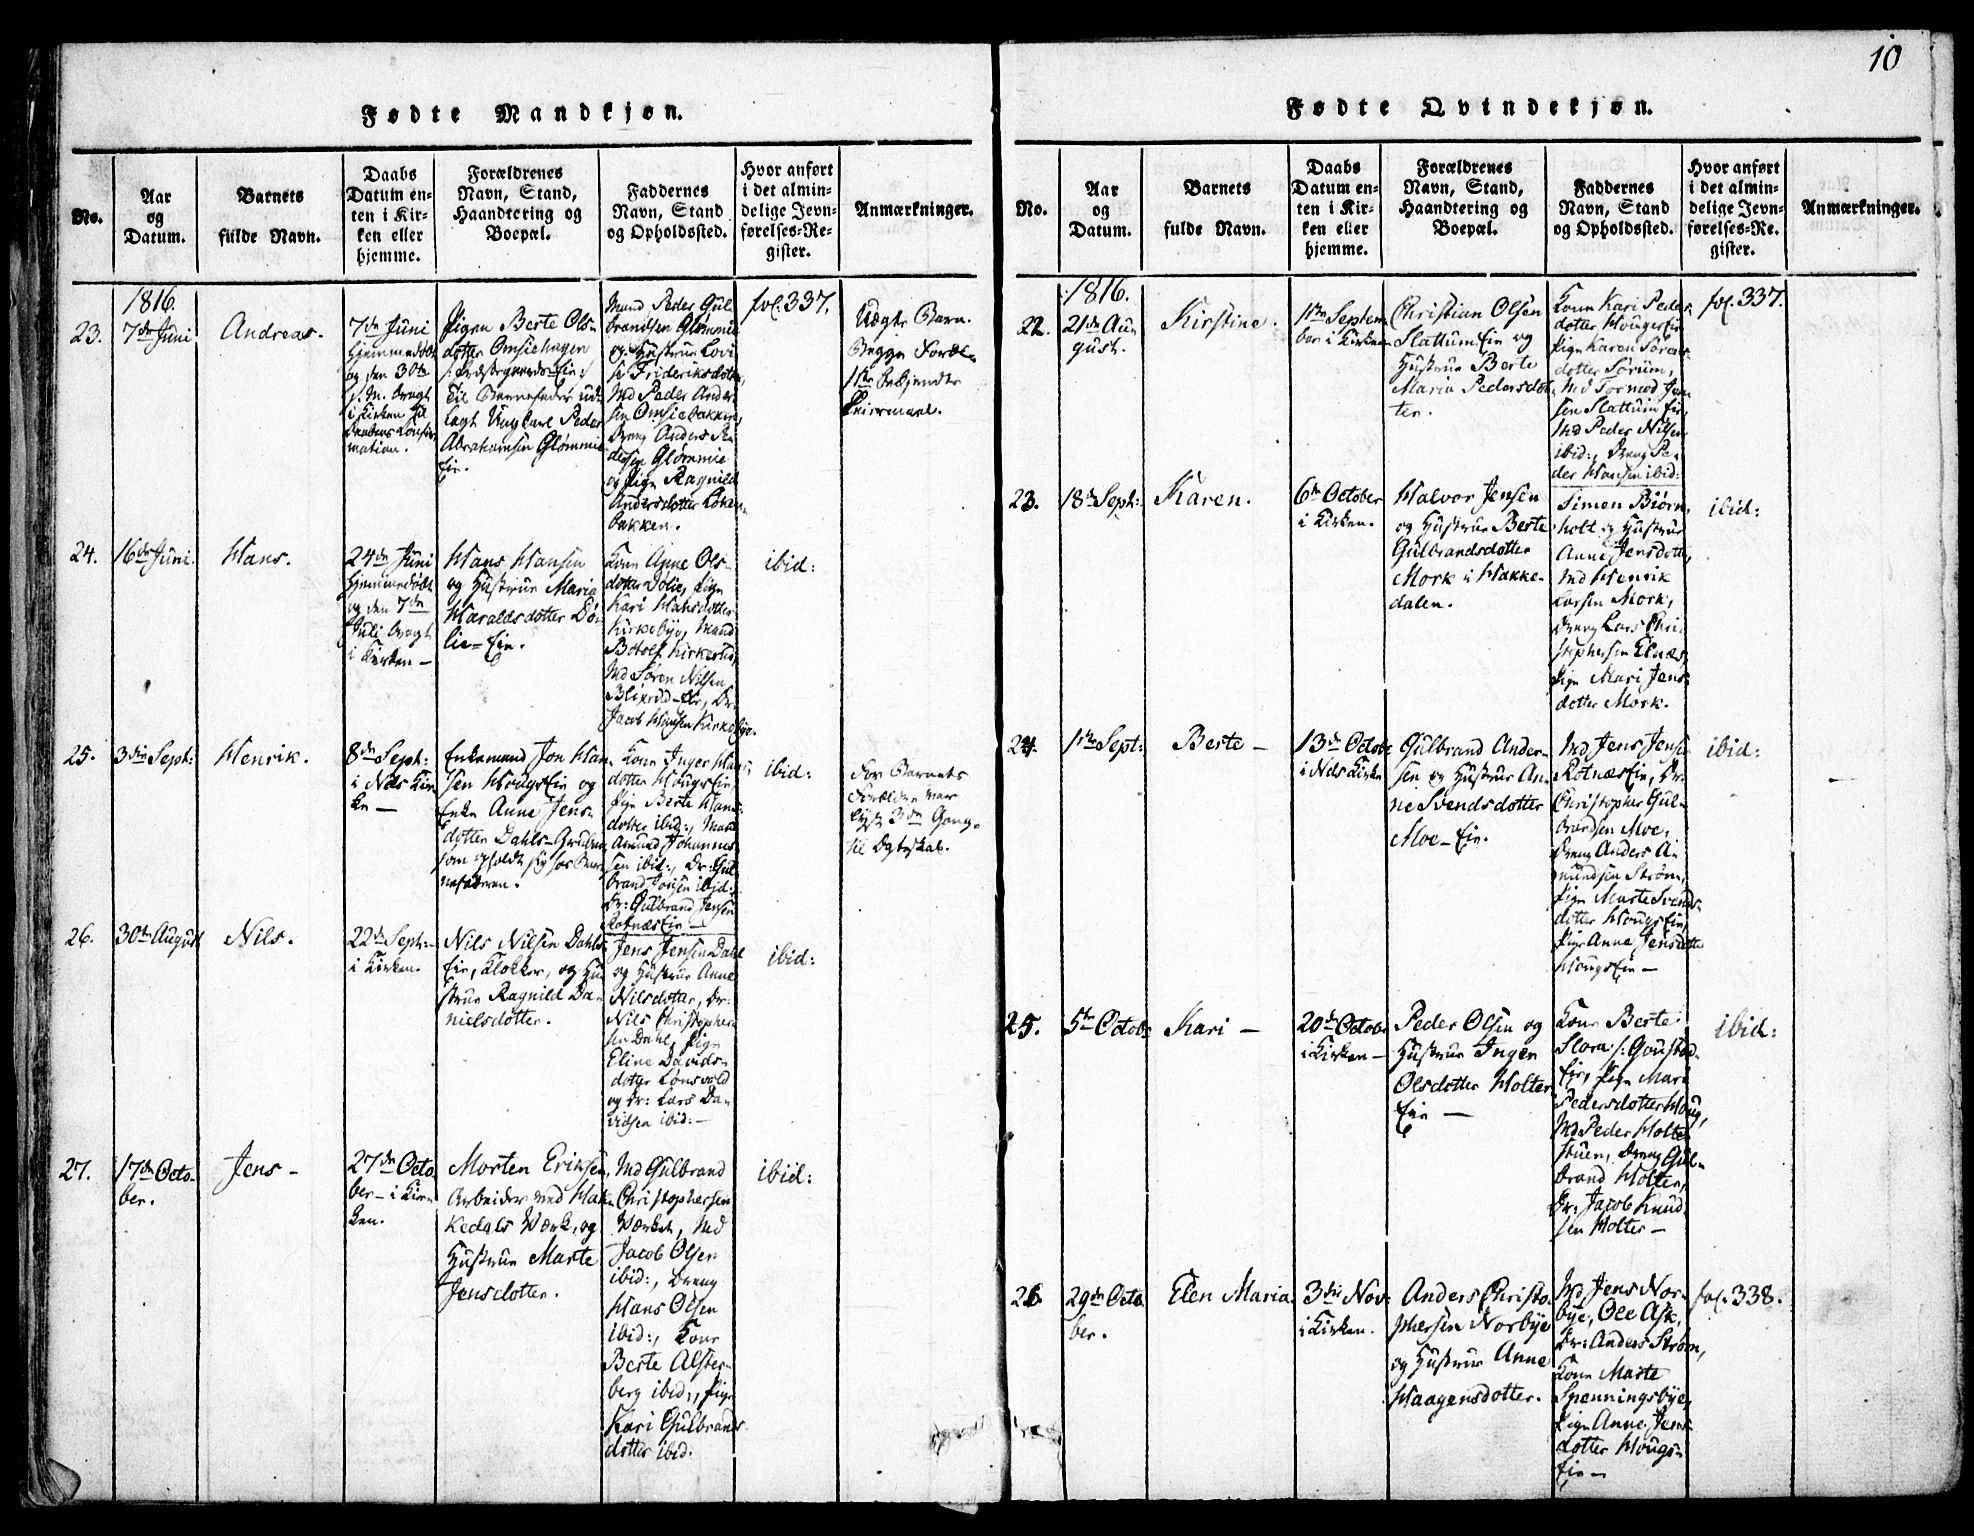 10
Fødte Mandkjøn.
No.
Aar
og
Datum.
Barnets
fulde Navn.
Daabs
Datum en-
ten i Kir-
ken eller
hjemme.
Forældrenes
Navn, Stand,
Haandtering og
Boepæl.
Faddernes
Navn, Stand
og Opholdssted.
Hvor anført
i det almin-
delige Jevn-
førelses-Re-
gister.
Anmærkninger.
1816.
23.
7de Juni
Andreas.
7de Juni
hjemmedøbt
og den 30te
s. M. bragt
i Kirken til
Daabens Confir-
mation.
Pigen Berte Ols-
dotter Omsiehagen
Til Barnefader ud-
lagt Ungkarl Peder
Abrahamsen Glømmie
Eie.
Mand Peder Gul-
brandsen Glømmie
og Hustrue Lovi-
se Frideriksdotter,
Md Peder Ander-
sen Omsiebakken,
Dreng Anders Pe-
dersen Glømmie
og Pige Ragnild
Andersdotter
bakken.
fol. 337.
Uægte Barn.
Begge Foræl.
1ste bekjendte
Leiermaal.
24.
16de Juni.
Hans.
24de Juni
hjemmedøbt
og den 7de
Juli bragt
i Kirken —
Hans Hansen
og Hustrue Maria
Haraldsdotter Dø-
lie-Eie.
Kone Anne Ols-
dotter Dølie, Pige
Kari Hansdotter
Kirkebye, Mand
Botolf Kirkerud,
Md Søren Nilsen
Blixrud-Eie, Dr:
Jacob Hansen Kirkebye.
ibid:
25.
3die Sept:
Henrik.
8de Sept:
i Nds Kir-
ke —
Enkemand Jon Han-
sen HougsEie og
Enke Anne Jens-
dotter Dahls-Gruben
som opholdt sig hos Bar-
nefaderen.
Kone Inger Hans-
dotter HougsEie,
Pige Berte Hans-
dotter ibid:, Mand
Amund Johannes-
sen ibid:, Dr: Gul-
brand Jonsen ibid:,
Dr: Gulbrand Jensen
RotnæsEie —
ibid:
For Barnets
Forældre var
lyst 3de Gang
til Ægteskab.
26.
30te August
Nils.
22de Sept:
i Kirken.
Nils Nilsen Dahls-
Eie, Klokker, og Hu-
strue Ragnild Da-
nielsdotter.
Jens Jensen Dahl
og Hustrue Anne
Nilsdotter, Dr:
Nils Christopher-
sen Dahl, Pige
Eline Davids-
dotter Lønsvold
og Dr: Lars Da-
vidsen ibid: —
ibid:
27.
17de Octo-
ber.
Jens —
27de Octo-
ber — i Kir-
ken.
Morten Eriksen,
Arbeider ved Hak-
kedals Værk, og
Hustrue Marte
Jensdotter.
Md Gulbrand
Christophersen
Værket, Md
Jacob Olsen
ibid:, Dreng
Hans Olsen
ibid:, Kone
Berte Alster-
berg ibid:, Pige
Kari Gulbrands-
dotter ibid.
ibid:
Fødte Qvindekjøn.
No.
Aar
og
Datum.
Barnets
fulde Navn.
Daabs
Datum en-
ten i Kir-
ken eller
hjemme.
Forældrenes
Navn, Stand,
Haandtering og
Boepæl.
Faddernes
Navn, Stand
og Opholdssted.
Hvor anført
i det almin-
delige Jevn-
førelses-Re-
gister.
Anmærkninger.
1816.
22.
21de Au-
gust.
Kirstine.
1ste Septem-
ber i Kirken
Christian Olsen
Slattum Eie og
Hustrue Berte
Maria Pedersdot-
ter.
Kone Kari Peders-
dotter HougerEie,
Pige Karen Sørens-
dotter Sørum,
Md Tormod Jen-
sen Slattum Eie,
Md Peder Nilsen
ibid:, Dreng Pe-
der Hansen ibid:
fol. 337.
23.
18de Sept:
Karen.
6te October
i Kirken.
Halvor Jensen
og Hustrue Berte
Gulbrandsdotter
Mork i Hakke-
dalen.
Simen Biørn-
holt og Hustrue
Anne Jensdotter,
Md Henrik
Larsen Mork,
Dreng Lars Chri-
stophersen Elnæs,
Pige Mari Jens-
dotter Mork.
ibid:
24.
11te Sept:
Berte —
13de Octobr
i Nds Kirke
Gulbrand Ander-
sen og Hustrue An-
ne Svendsdotter
Moe-Eie.
Md Jens Jensen
RotnæsEie, Dr:
Christopher Gul-
brandsen Moe,
Dreng Anders A-
mundsen Strøm,
Pige Marte Svends-
dotter HougsEie,
Pige Anne Jensdotter
HougsEie —
ibid:
25.
5te Octobr
Kari —
20de Octobr
i Kirken —
Peder Olsen og
Hustrue Inger
Olsdotter Holter
Eie —
Kone Berte
Flora /: Goustad-
Eie, Pige Mari
Pedersdotter Houg,
Md Peder Holter-
stuen, Dreng Gul-
brand Holter,
Dr: Jacob Knud-
sen Holter —
ibid:
26.
29de Octo-
ber.
Elen Maria.
3die Nov:
i Kirken.
Anders Christo-
phersen Norbye
og Hustrue Anne
Haagensdotter.
Md Jens Nor-
bye, Ole Ask,
Dr: Anders Strøm,
Kone Marte
Spenningsbye,
Pige Anne Jens-
dotter Hougs-
Eie —
fol. 338.